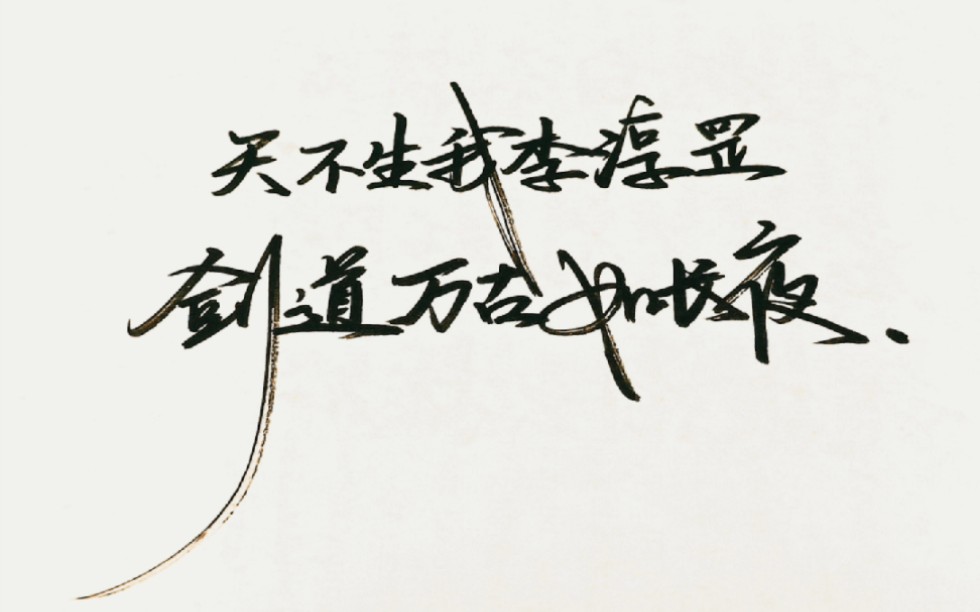 天不生我李淳罡
剑道万古如长夜.